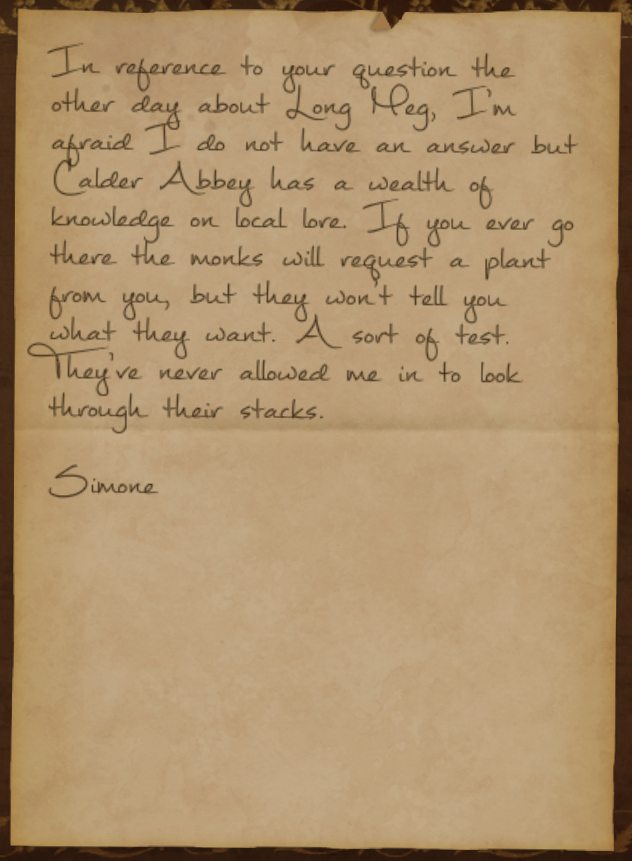 In reference to your question the
other day about Long Meg, I'm
afraid I do not have an answer but
Calder Abbey has a wealth of
knowledge on local lore. If you ever go
there the monks will request a plant
from you, but they won't tell you
what they want. A sort of test.
They've never allowed me in to look
through their stacks.
Simone